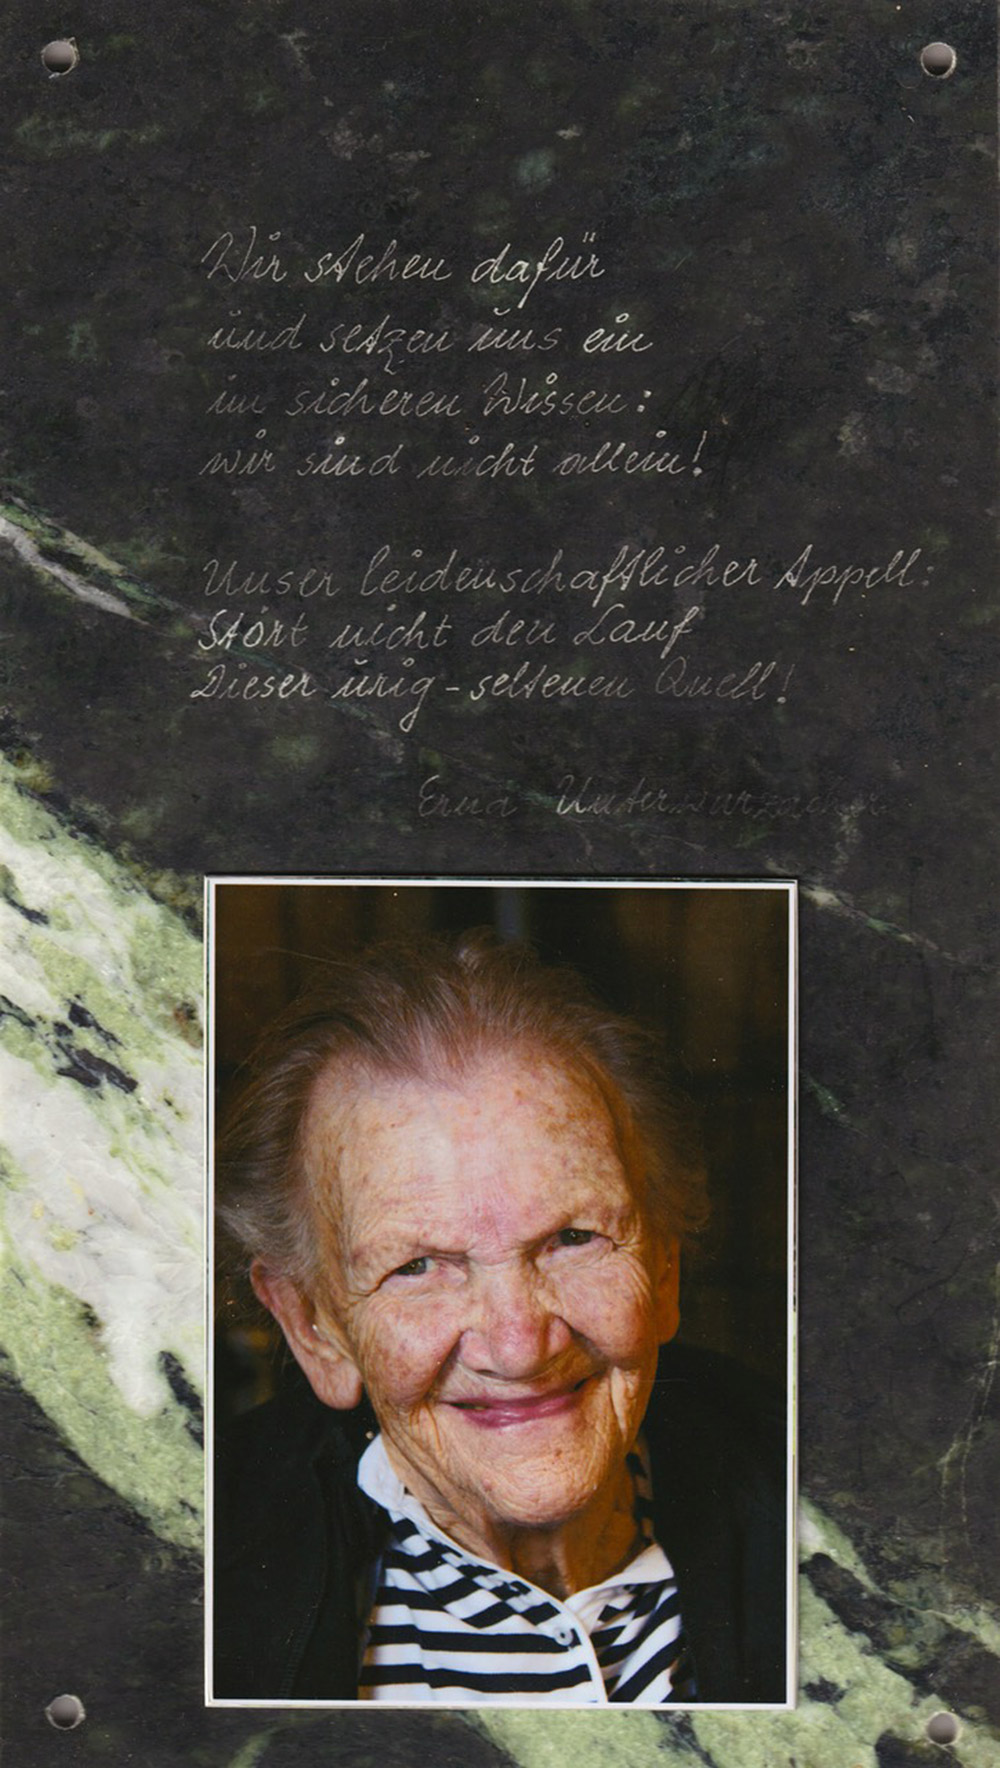 Wir stehen dafür
und setzen uns ein
im sicheren Wissen:
wir sind nicht allein!
Unser leidenschaftlicher Appell:
Stört nicht den Lauf
Dieser urig-seltenen Quell!
Erna Unterwurzacher